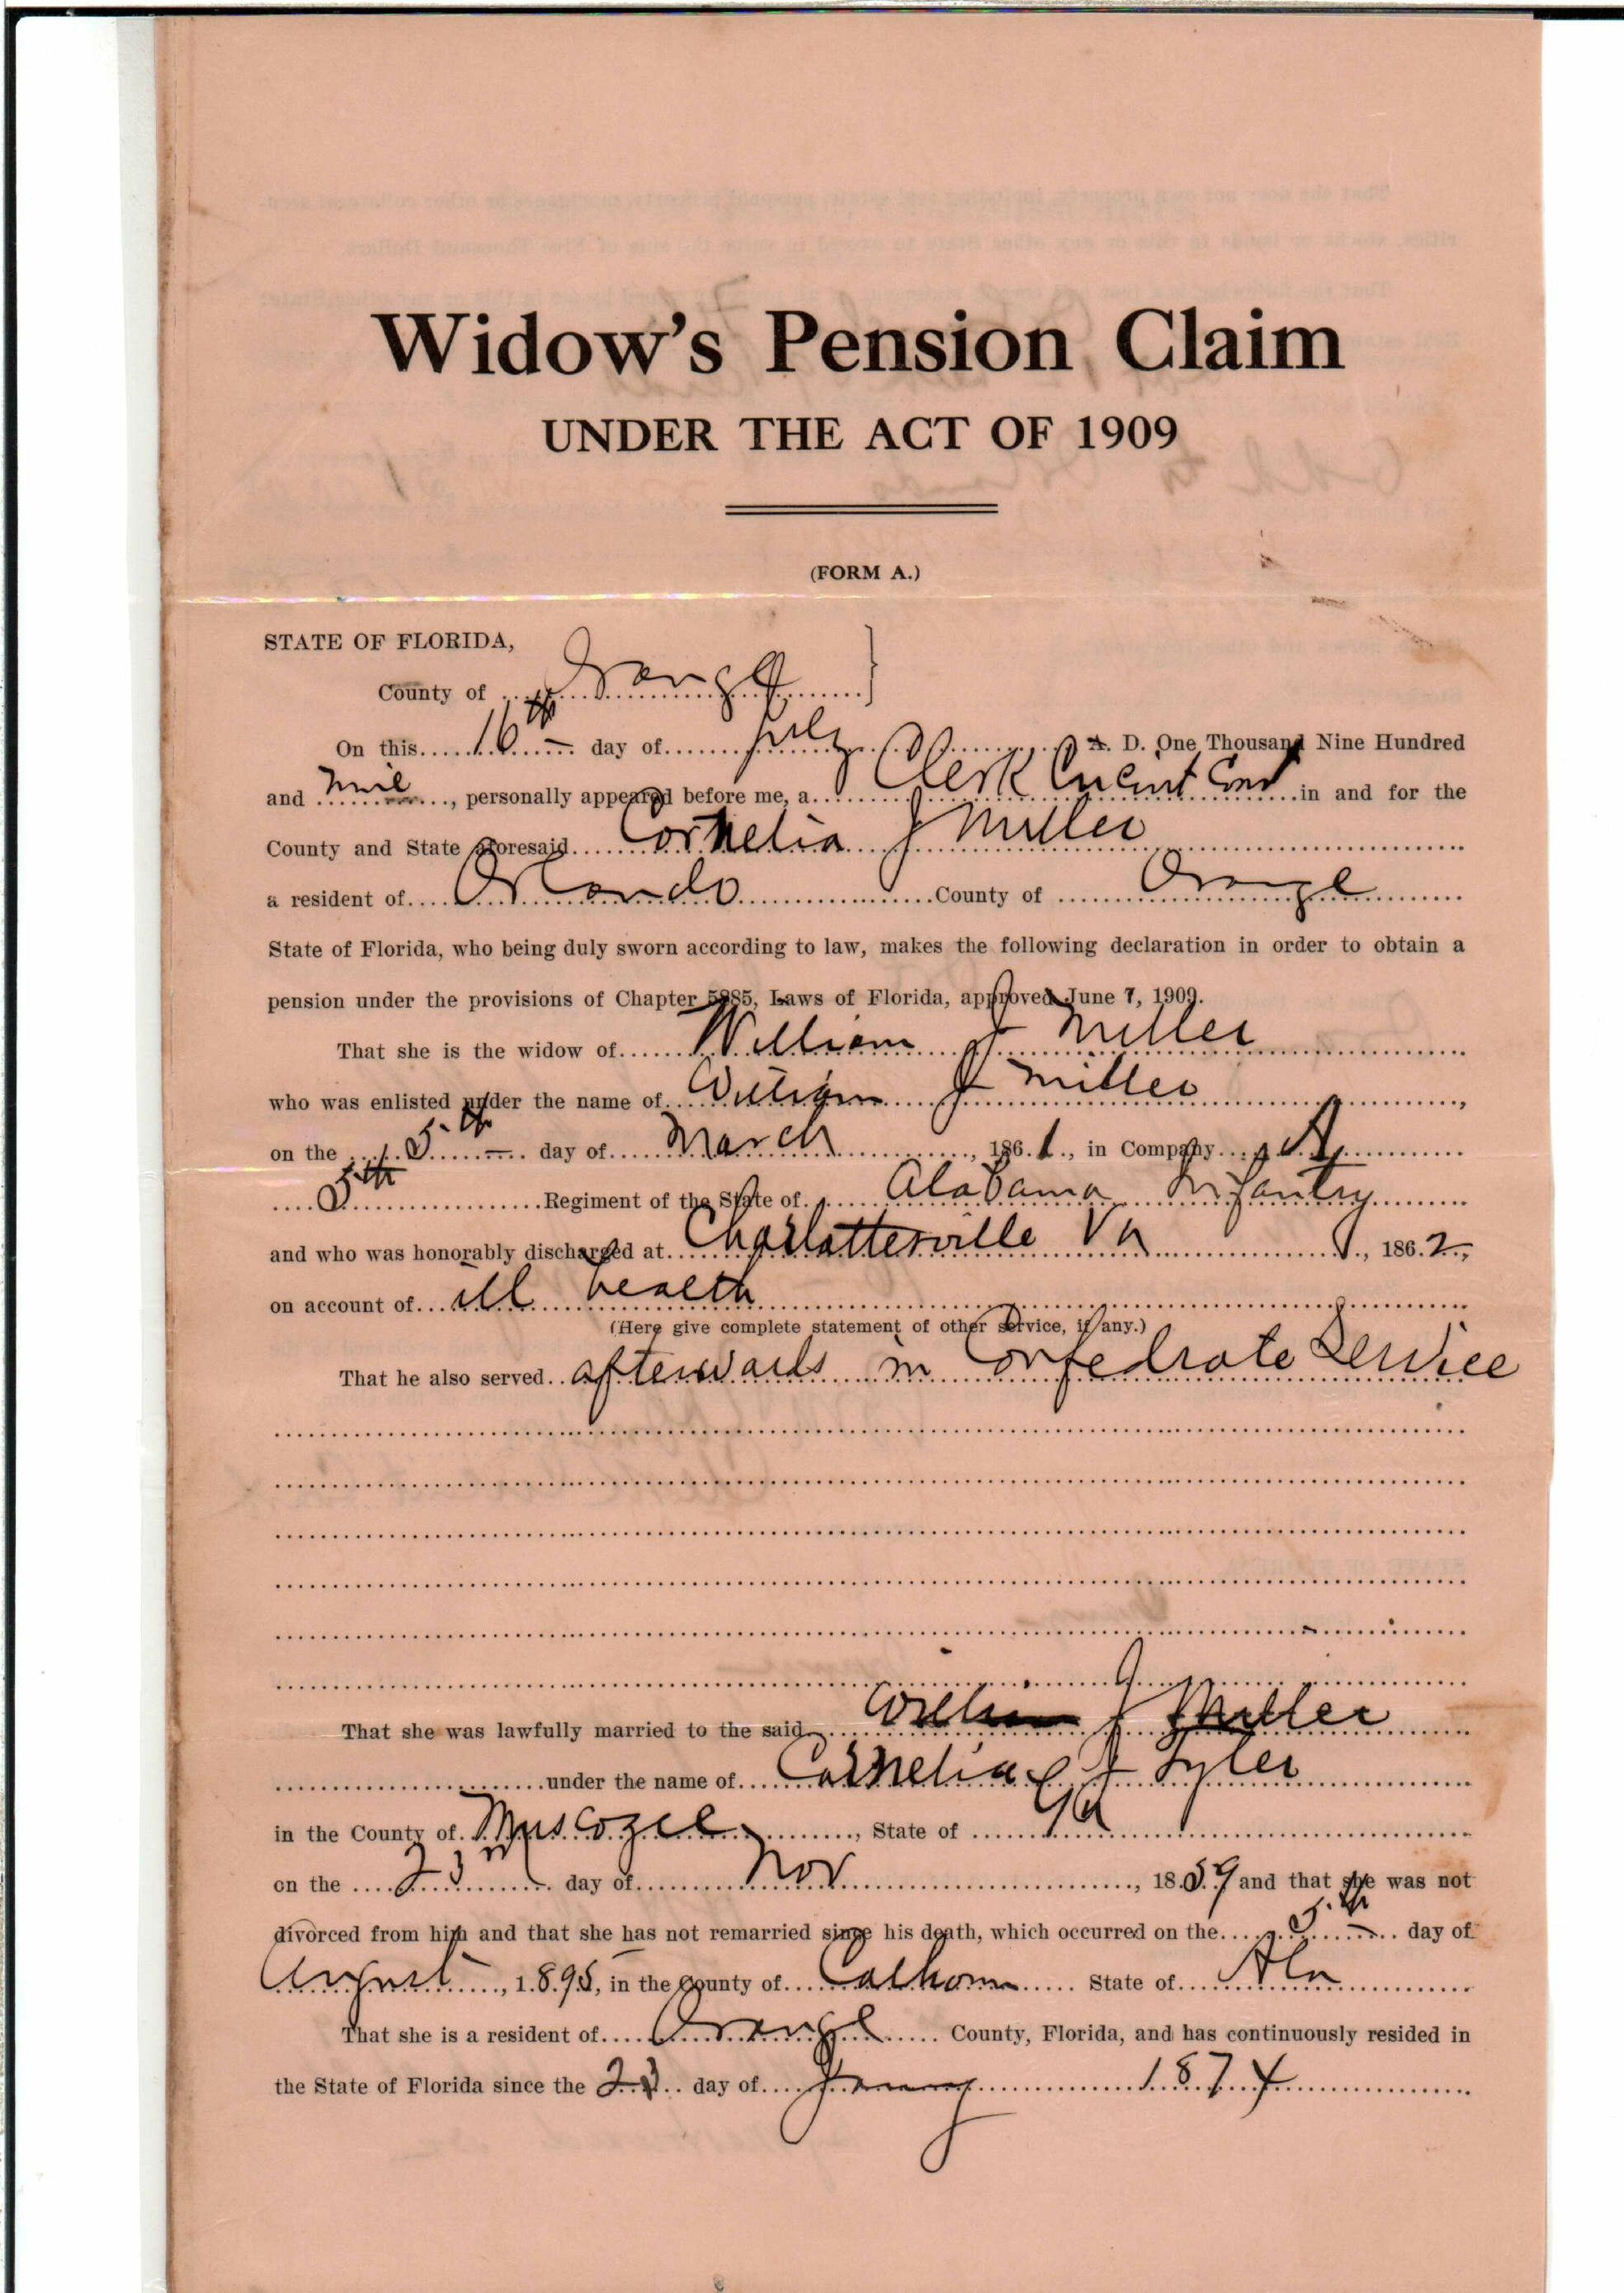 Widow's Pension Claim
UNDER THE ACT OF 1909
(FORM A.)
STATE OF FLORIDA,
County of Orange
On this 16th day of July A. D. One Thousand Nine Hundred
and nine, personally appeared before me, a Clerk Circuit Court in and for the
County and State aforesaid Cornelia J Miller
a resident of Orlando County of Orange
State of Florida, who being duly sworn according to law, makes the following declaration in order to obtain a
pension under the provisions of Chapter 5885, Laws of Florida, approved June 7, 1909.
That she is the widow of William J Miller
who was enlisted under the name of William J Miller,
on the 15th day of March, 1861, in Company A
5th Regiment of the State of Alabama Infantry
and who was honorably discharged at Charlottesville Va, 1862,
on account of ill health
(Here give complete statement of other service, if any.)
That he also served afterwards in Confedrate Service
That she was lawfully married to the said William J Miller
under the name of Cornelia J Tyler
in the County of Muscogee, State of Ga
on the 23rd day of Nov, 1859 and that she was not
divorced from him and that she has not remarried since his death, which occurred on the 5th day of
August, 1895, in the County of Calhoun State of Ala
That she is a resident of Orange County, Florida, and has continuously resided in
the State of Florida since the day of January 1874